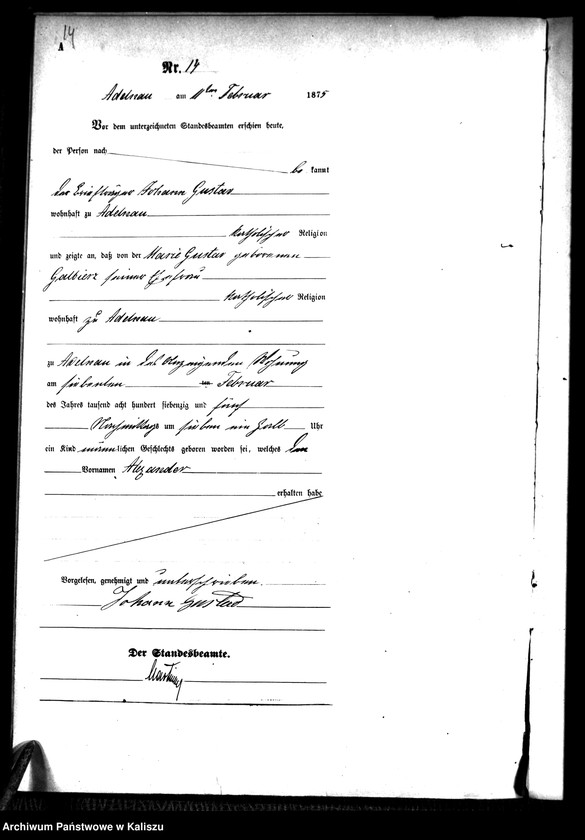 14
A
Nr. 14
Adelnau am 11ten Februar 1875
Vor dem unterzeichneten Standesbeamten erschien heute,
der Person nach
be kannt
der Briefträger Johann Gustar
wohnhaft zu Adelnau
katholischer Religion
und zeigte an, daß von der Marie Gustar geborenen
Galbierz seiner Ehefrau
katholischer Religion
wohnhaft zu Adelnau
zu Adelnau in des Anzeigenden Wohnung
am siebenten ten Februar
des Jahres tausend acht hundert siebenzig und fünf
Nachmittags um sieben ein halb Uhr
ein Kind männlichen Geschlechts geboren worden sei, welches den
Vornamen Alexander
erhalten habe
Vorgelesen, genehmigt und unterschrieben.
Johann Gustar
Der Standesbeamte.
Archiwum Państwowe w Kaliszu